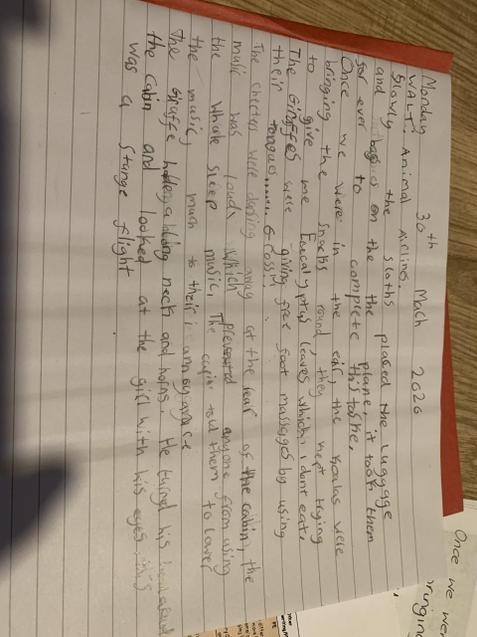 Monday 30th Mach 2026
WALT: Animal Airline.
Slowly the sloths placed the luggage
and bags on the plane, it took them
for ever to complete this taske.
Once we were in the air, the Koalas were
bringing the snacks round, they kept trying
to give me Eucalyptus leaves which i dont eat.
The Giraffes were giving free foot massages by using
their tongues...... Gross!!
The cheeters were dancing away at the rear of the cabin, the
music was loud, which prevented anyone from using
the whale sleep music. The captin told them to lower
the music, much to their annoyance
The Giraffe had long neck and horns. He turned his head around
the cabin and looked at the girl with his eyes, this
was a strange flight
Once we wer
bringing